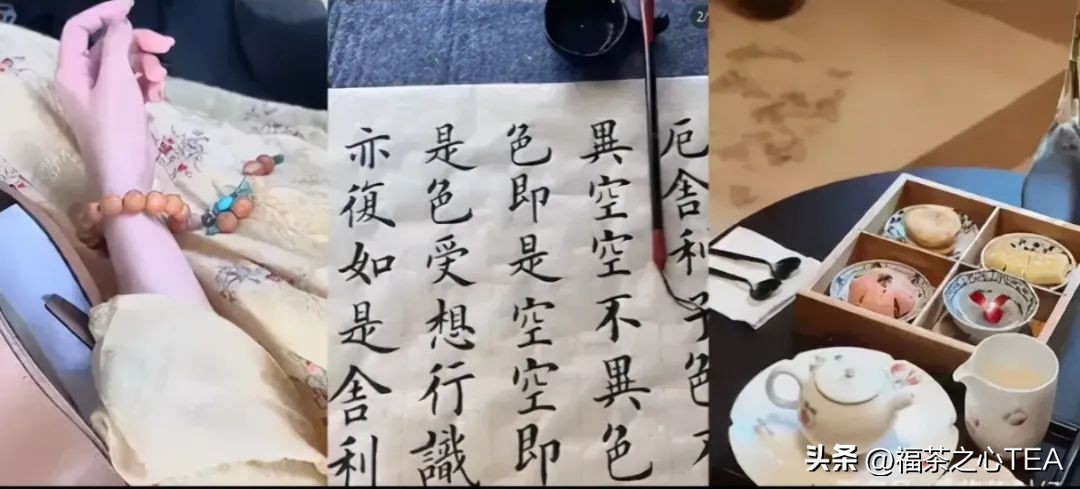 厄舍利子色不
異空空不異色
色即是空空即
是色受想行識
亦復如是舍利
2/
头条 @福茶之心TEA